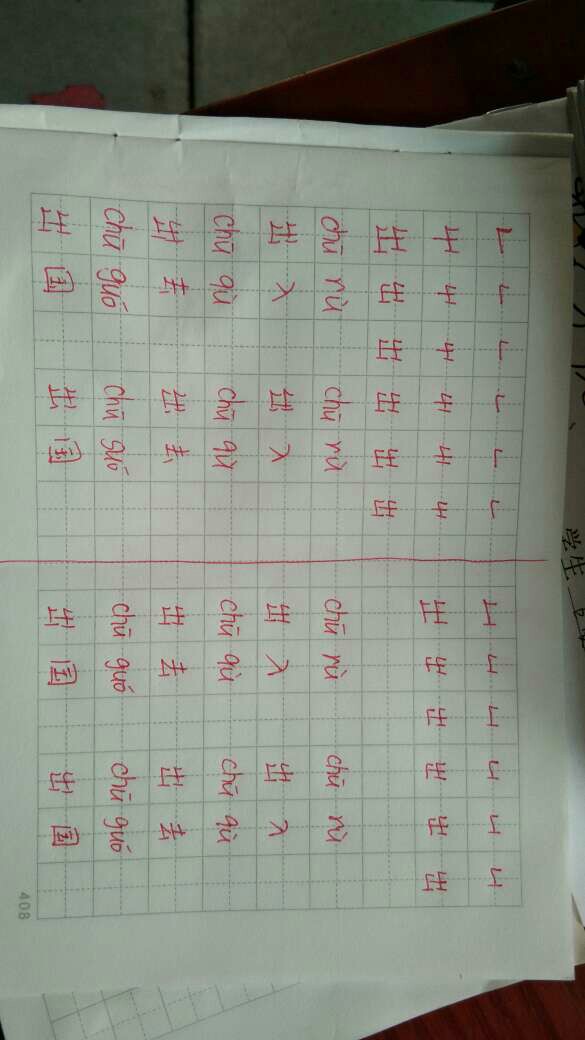 屮 屮 屮 屮 屮 屮 出 出 出 出 出 出
出 出 出 出 出 出
chū rù chū rù chū rù chū rù
出入 出入 出入 出入
chū qù chū qù chū qù chū qù
出去 出去 出去 出去
chū guó chū guó chū guó chū guó
出国 出国 出国 出国
408
学生